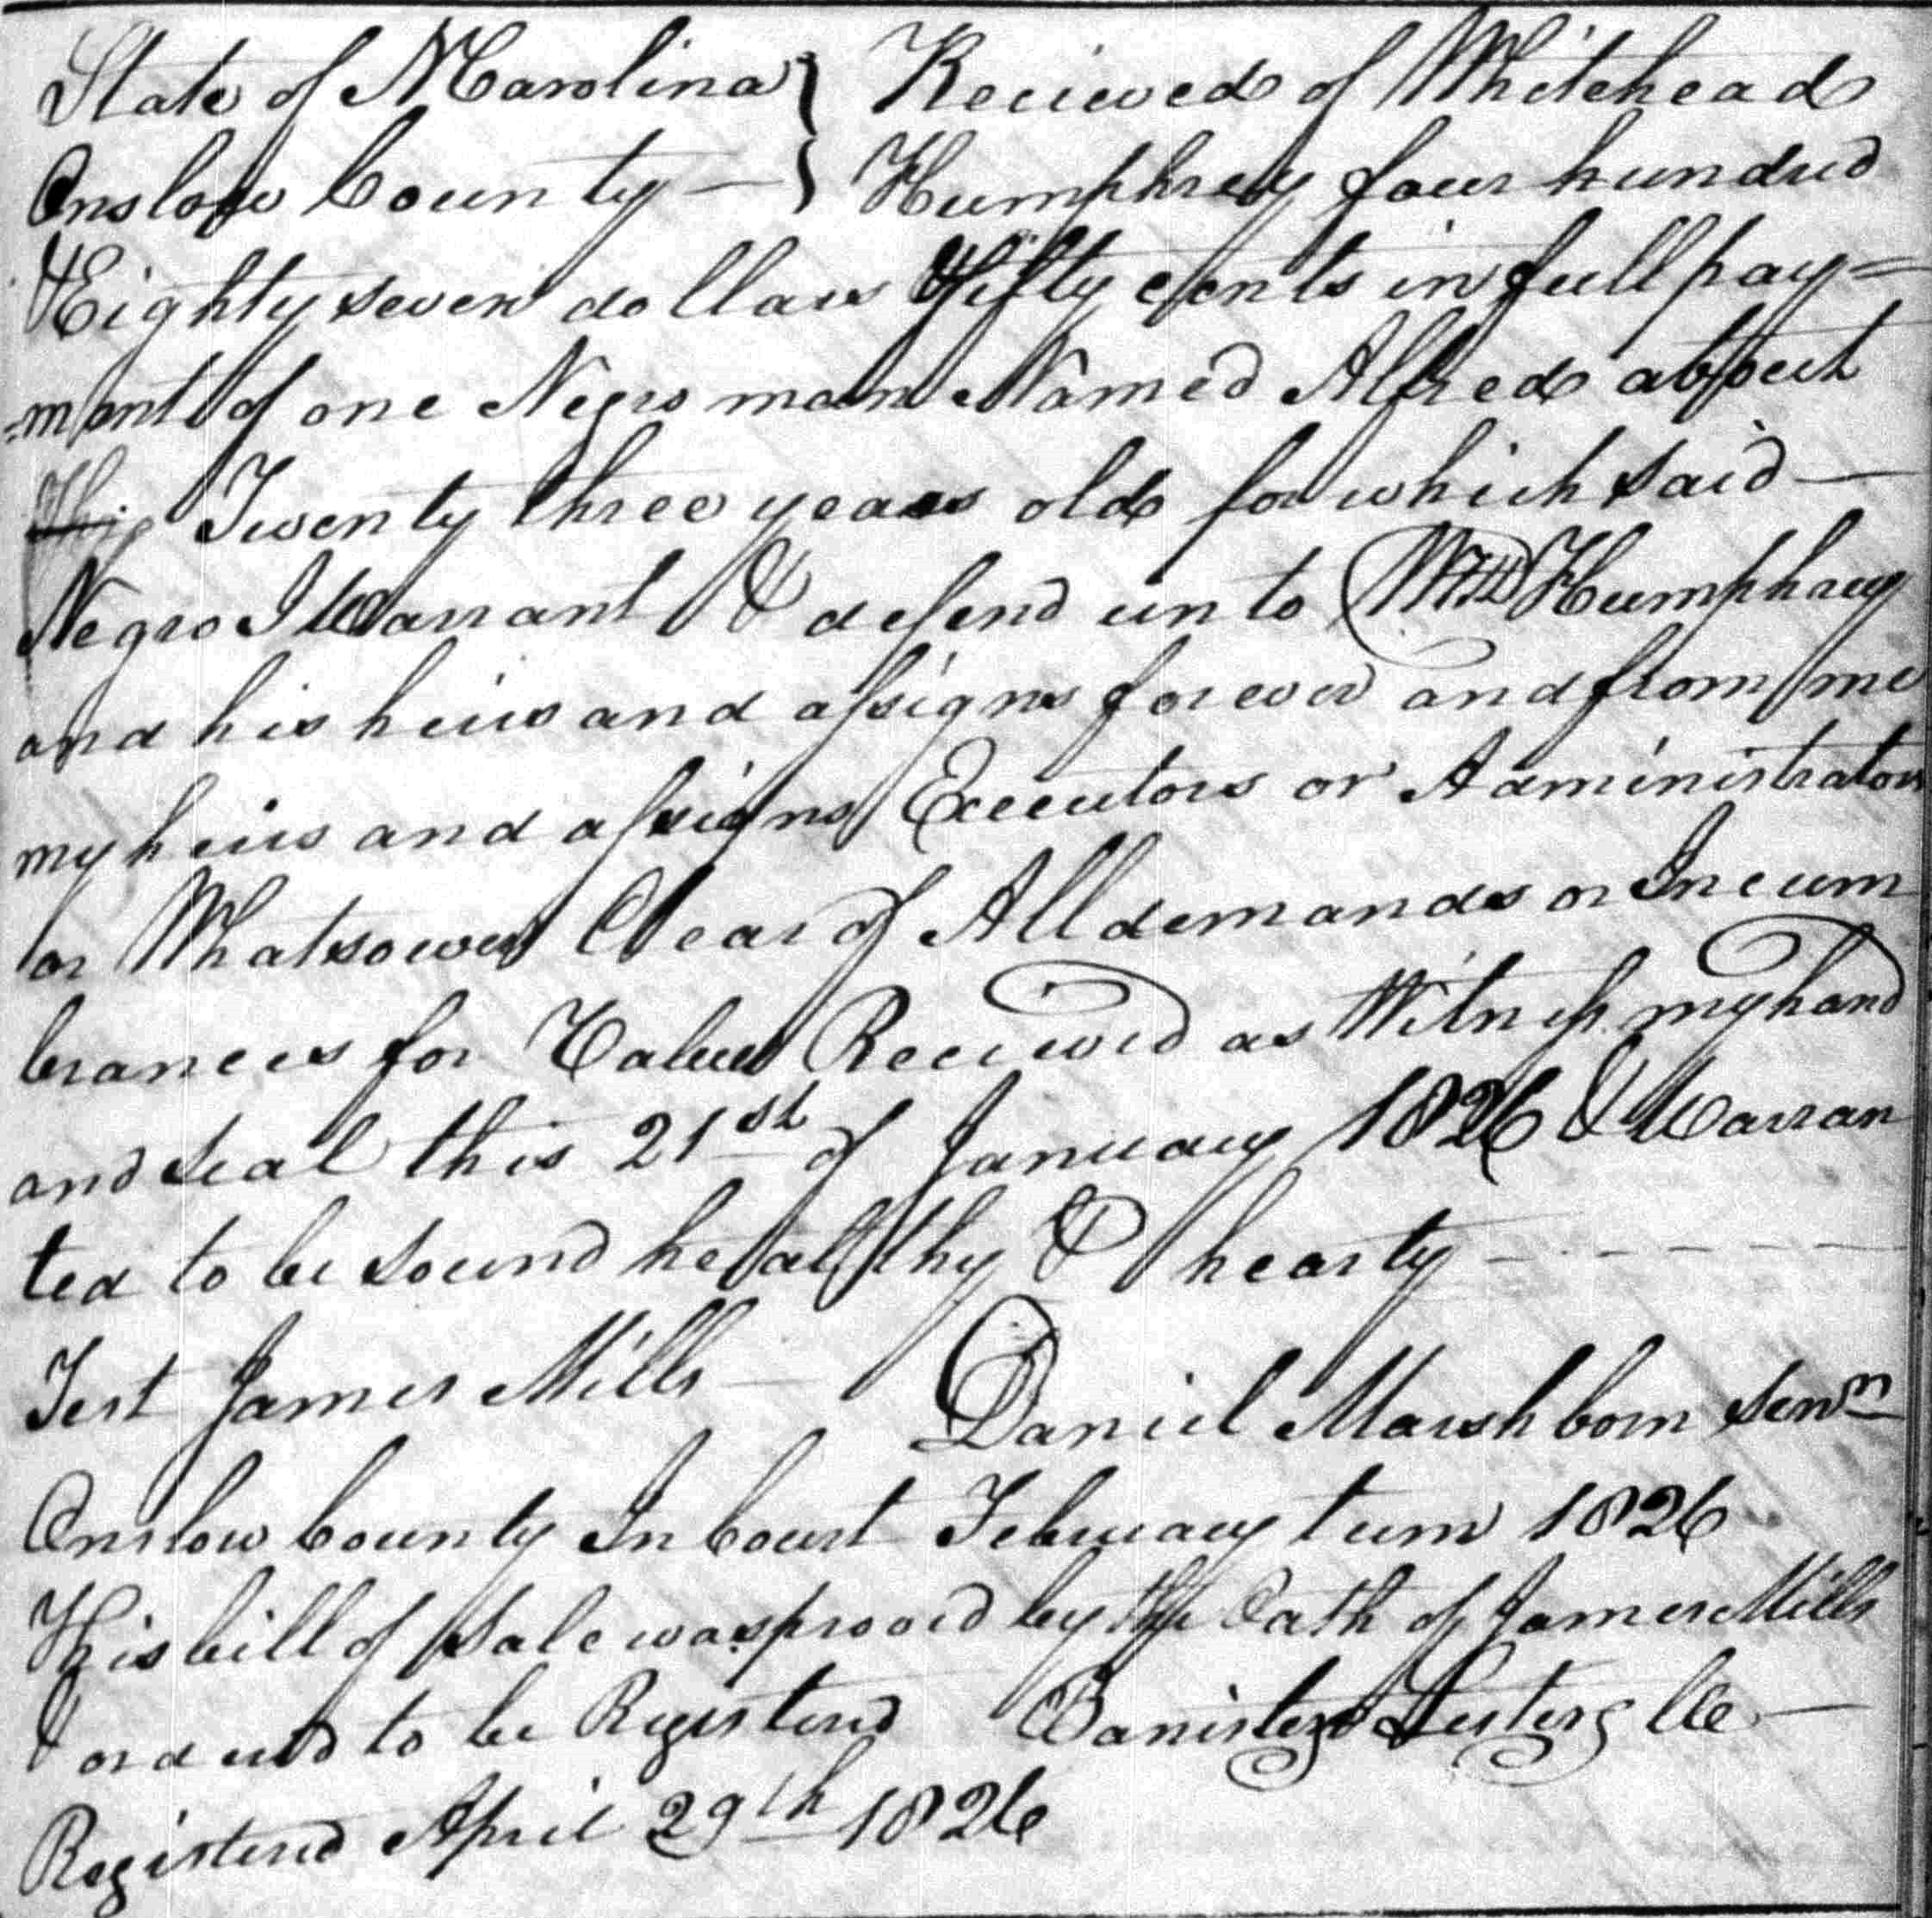 State of N Carolina } Recieved of Whitehead
Onslow County — } Humphrey four hundred
& Eighty seven dollars & fifty cents in full pay=
=ment of one Negro man Named Alfred about
Twenty three years old for which said —
Negro I Warrant & defend unto Whd Humphrey
and his heirs and assigns forever and from me
my heirs and assigns Executors or Administrators
or Whatsoever Clear of All demands or Incum
brances for Value Received as Witness my hand
and seal this 21st of January 1826 & Warran
ted to be sound healthy & hearty
Test James Mills — Daniel Marshborn Senr
Onslow County In Court February term 1826
This bill of Sale was proved by the Oath of James Mills
& ordered to be Registered Banister Lester Clk —
Registered April 29th 1826